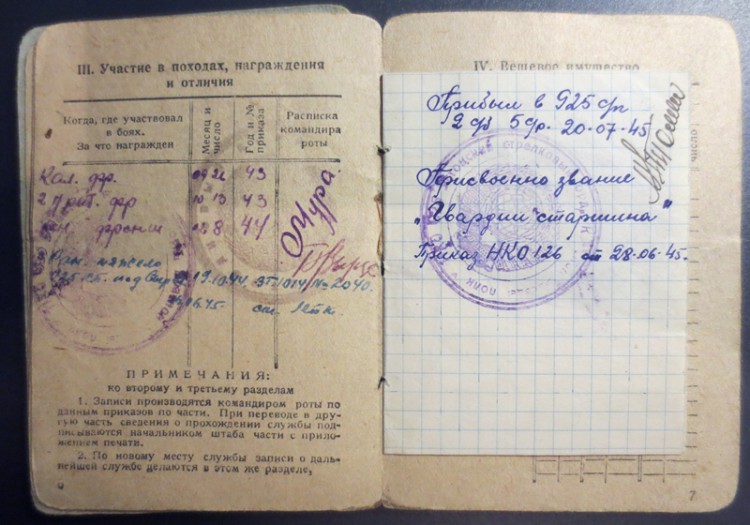 III. Участие в походах, награждения
и отличия
Когда, где участвовал
в боях.
За что награжден
Месяц и
число
Год и №
приказа
Расписка
командира
роты
Кал. фр. 43
2 Приб. фр 10 13 43
фронт 8 44
Ран. тяжело
925 с.п. под 19.10.44 №2040.
06.45
ПРИМЕЧАНИЯ:
ко второму и третьему разделам
1. Записи производятся командиром роты по
данным приказов по части. При переводе в дру-
гую часть сведения о прохождении службы под-
писываются начальником штаба части с прило-
жением печати.
2. По новому месту службы записи о даль-
нейшей службе делаются в этом же разделе,
6
IV. Вещевое имущество
Прибыл в 925 сп
2 сб 5 ср. 20-07-45
Присвоено звание
„Гвардии старшина"
Приказ НКО 126 от 28-06-45.
число
7